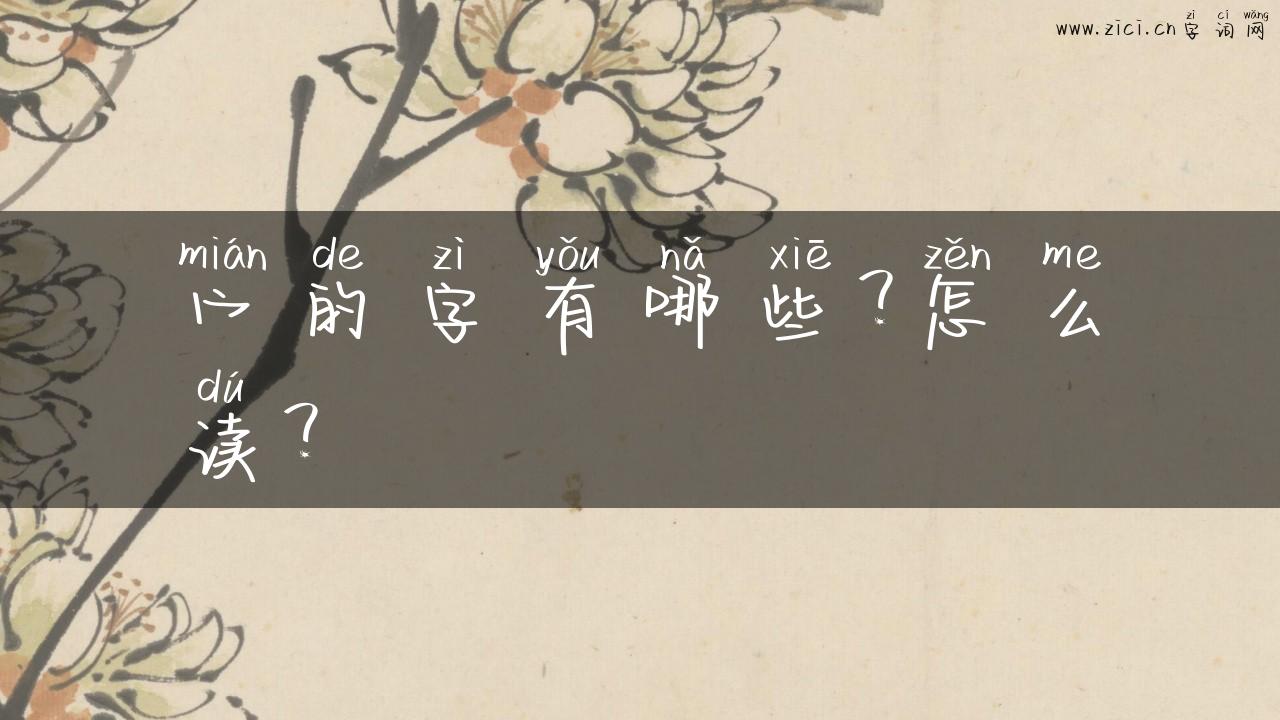 www.zici.cn 字词网
zì cí wǎng
mián de zì yǒu nǎ xiē zěn me
宀的字有哪些?怎么
dú
读?